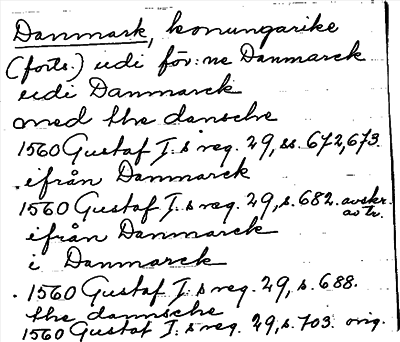 Danmark, konungarike
(forts.) udi för:ne Danmarck
udi Danmarck
med the dansche
1560 Gustaf I:s reg. 29, ss. 672, 673.
ifrån Danmarck
1560 Gustaf I:s reg. 29, s. 682. avskr. av tr.
ifrån Danmarck
i Danmarck
1560 Gustaf I:s reg. 29, s. 688.
the dannsche
1560 Gustaf I:s reg. 29, s. 703. orig.